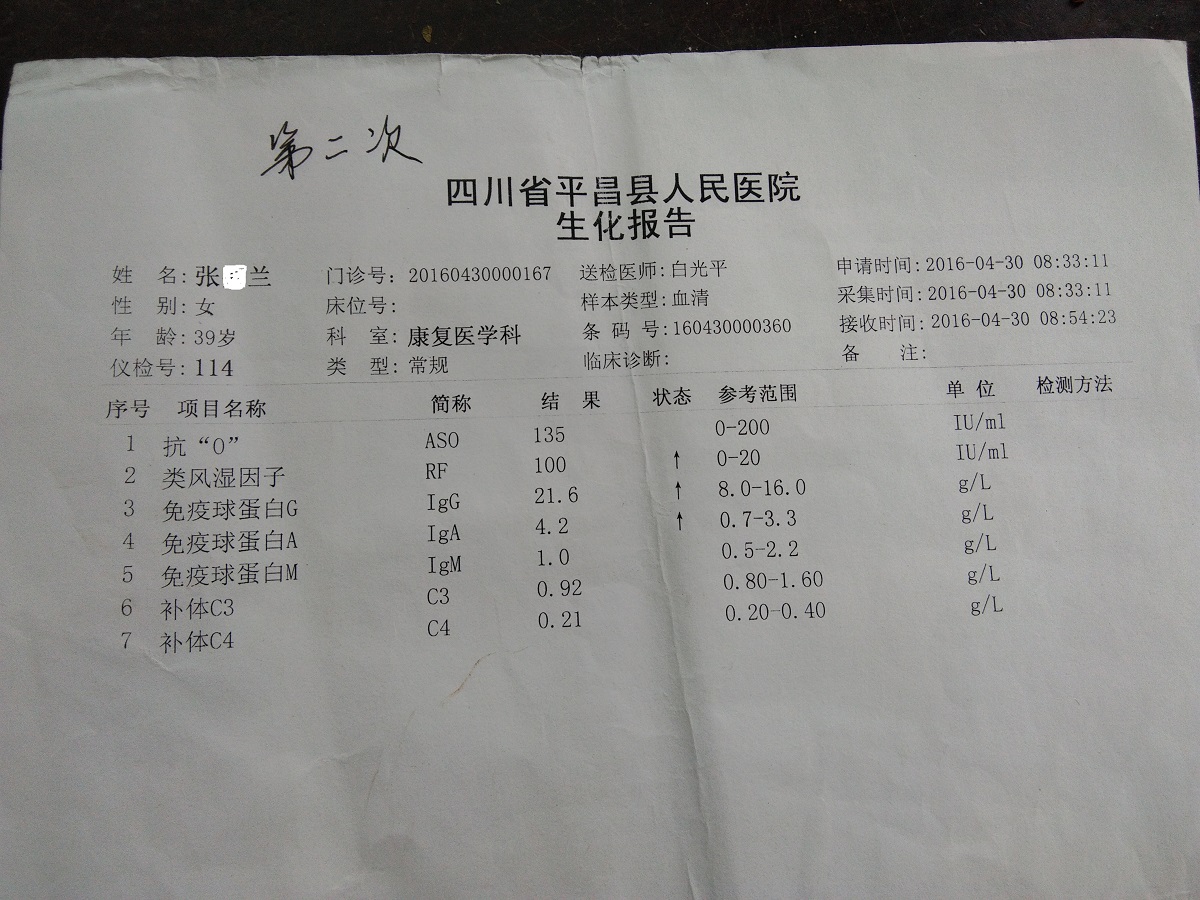 第二次
四川省平昌县人民医院
生化报告
姓 名: 张 兰 门诊号: 20160430000167 送检医师: 白光平 申请时间: 2016-04-30 08:33:11
性 别: 女 床位号: 样本类型: 血清 采集时间: 2016-04-30 08:33:11
年 龄: 39岁 科 室: 康复医学科 条 码 号: 160430000360 接收时间: 2016-04-30 08:54:23
仪检号: 114 类 型: 常规 临床诊断: 备 注:
序号 项目名称 简称 结 果 状态 参考范围 单 位 检测方法
1 抗“O” ASO 135 0-200 IU/ml
2 类风湿因子 RF 100 ↑ 0-20 IU/ml
3 免疫球蛋白G IgG 21.6 ↑ 8.0-16.0 g/L
4 免疫球蛋白A IgA 4.2 ↑ 0.7-3.3 g/L
5 免疫球蛋白M IgM 1.0 0.5-2.2 g/L
6 补体C3 C3 0.92 0.80-1.60 g/L
7 补体C4 C4 0.21 0.20-0.40 g/L